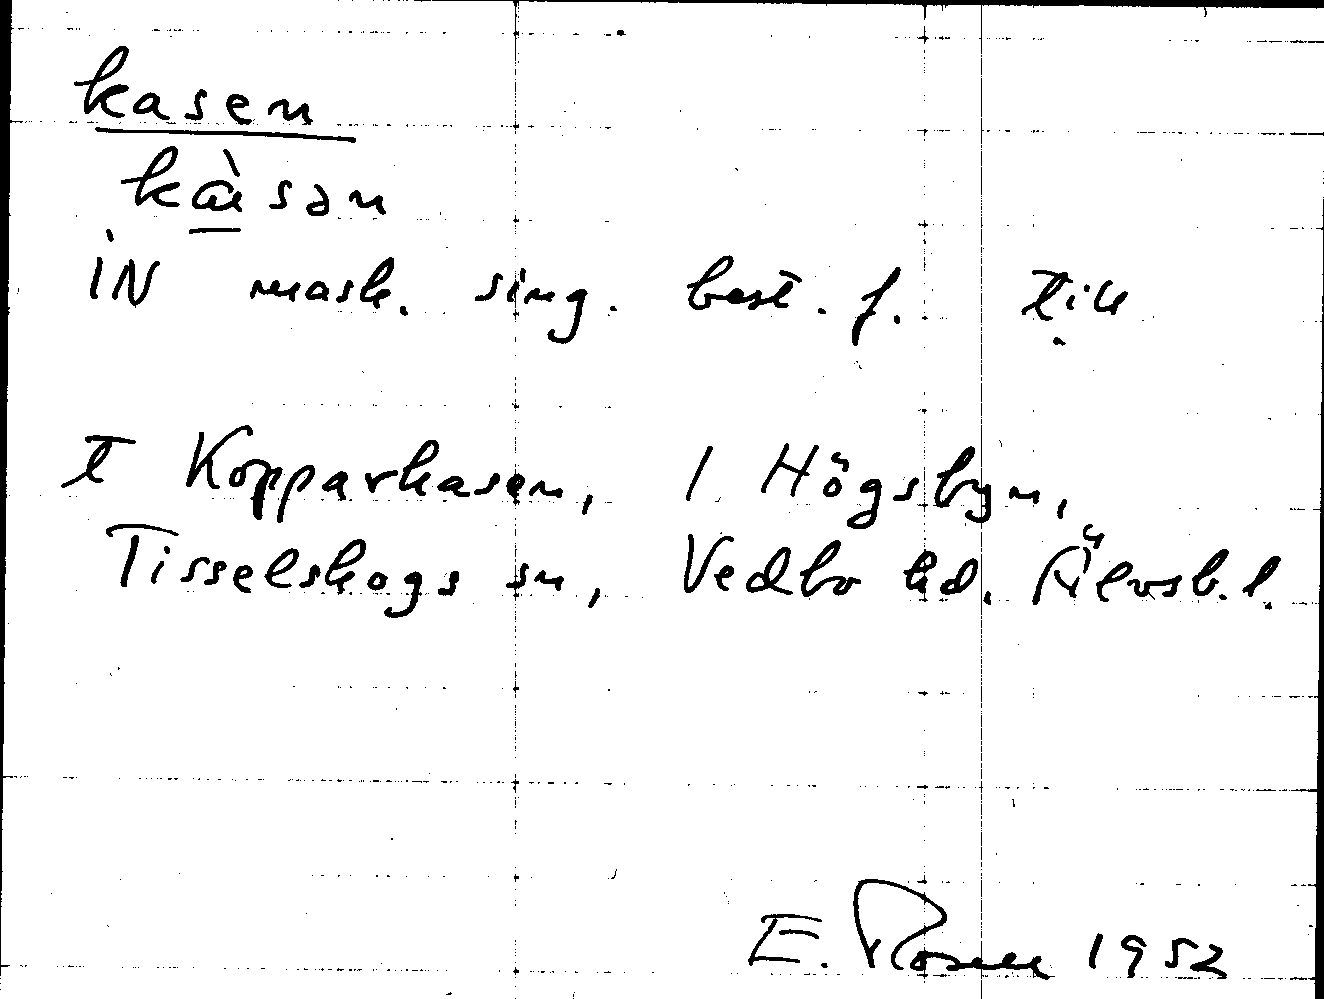 kasen
kɑ̀sən
iN mask. sing. best. f. till
t Kopparkasen, 1 Högsbyn,
Tisselskogs sn, Vedbo hd. Älvsb. l.
E. Rosell 1952